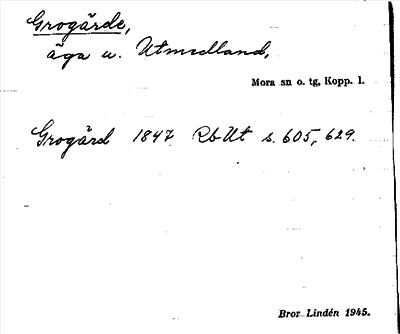 Grogårde,
äga u. Utmedland,
Mora sn o. tg, Kopp. l.
Grogård 1847 Rb Ut s. 605, 629.
Bror Lindén 1945.